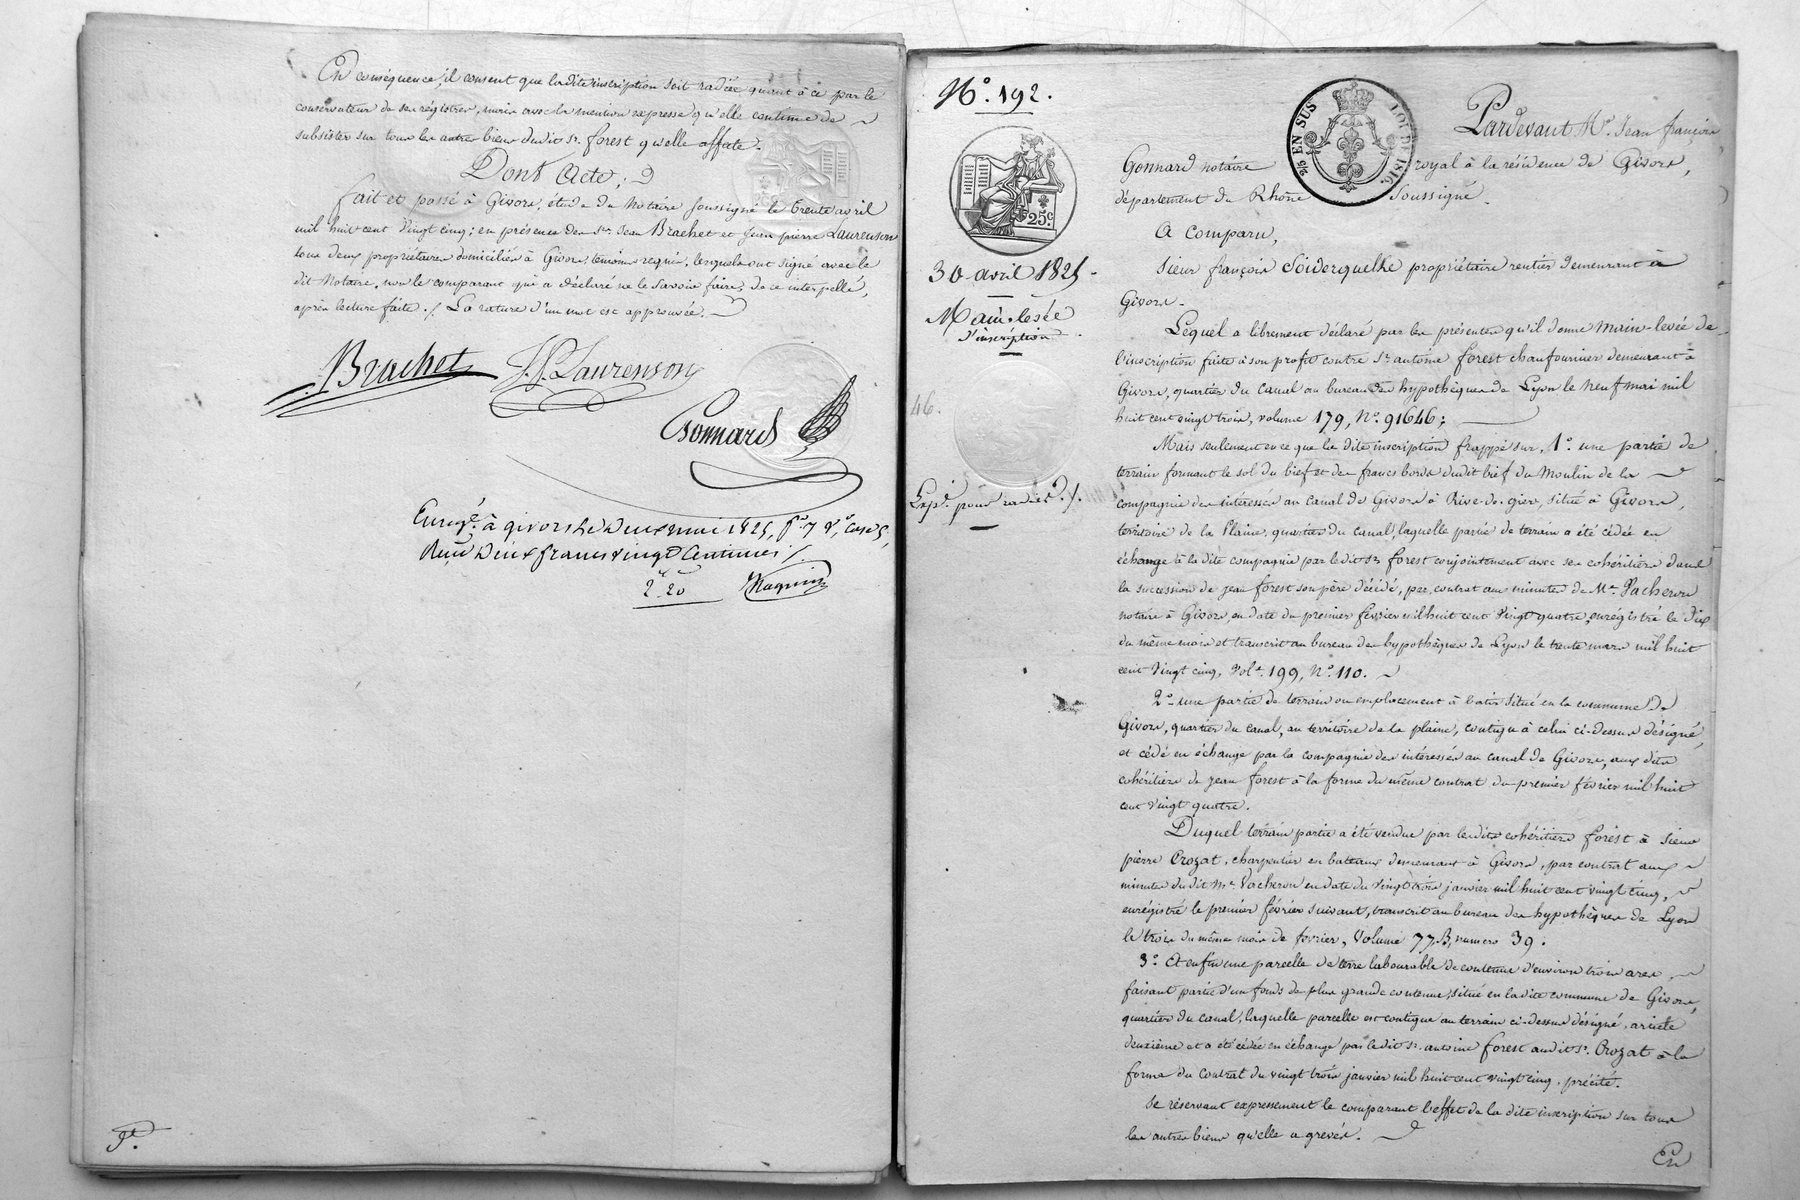 En conséquence, il consent que la dite inscription soit radiée quant à ce par le
conservateur de ses régistres, mais avec la mention expresse qu'elle continue de
subsister sur tous les autres biens dudit Sr. forest qu'elle affecte.
Dont Acte;
fait et passé à Givors, étude du Notaire soussigné le trente avril
mil huit cent vingt cinq; en présence des Srs. Jean Brachet et Jean pierre Laurenson
tous deux propriétaires domiciliés à Givors, témoins requis, lesquels ont signé avec le
dit Notaire, non le comparant qui a déclaré ne le savoir faire, de ce interpellé,
après lecture faite. /. La rature d'un mot est approuvée.
Brachet J.P. Laurenson
Gonnard
Enregé. à givors le deux mai 1825, fo. 7 Vo. Case 5,
Reçu deux francs vingt Centimes /
2 f. 20
No. 192.
25c
2/5 EN SUS LOI DE 1816.
30 avril 1825
Main-levée
d'inscription
46.
Expé. pour radier. /.
Pardevant Me. Jean françois
Gonnard notaire royal à la résidence de Givors,
département du Rhône soussigné.
A comparu,
Sieur françois Soiderquelke propriétaire rentier demeurant à
Givors.
Lequel a librement déclaré par les présentes qu'il donne main-levée de
l'inscription faite à son profit contre Sr. antoine forest chaufournier demeurant à
Givors, quartier du Canal au bureau des hypothèques de Lyon le neuf mai mil
huit cent vingt trois, volume 179, No. 91646;
Mais seulement en ce que la dite inscription frappe sur, 1o. une partie de
terrain formant le sol du bief et des francs bords dudit bief du Moulin de la
compagnie des intéressés au canal de Givors à Rive-de-gier, situé à Givors,
territoire de la Plaine, quartier du canal, laquelle partie de terrain a été cédée en
échange à la dite compagnie par ledit Sr. forest conjointement avec ses cohéritiers dans
la succession de jean forest son père décédé, par contrat aux minutes de Me. Vacheron
notaire à Givors, en date du premier février mil huit cent vingt quatre, enrégistré le dix
du même mois et transcrit au bureau des hypothèques de Lyon le trente mars mil huit
cent vingt cinq, vole. 199, No. 110.
2o. une partie de terrain ou emplacement à batir situé en la commune de
Givors, quartier du canal, au territoire de la plaine, contigu à celui ci-dessus désigné,
et cédé en échange par la compagnie des intéressés au canal de Givors, aux dits
cohéritiers de jean forest à la forme du même contrat du premier février mil huit
cent vingt quatre.
Duquel terrain partie a été vendue par lesdits cohéritiers forest à sieur
pierre Crozat, charpentier en bateaux demeurant à Givors, par contrat aux
minutes dudit Me. Vacheron en date du vingt trois janvier mil huit cent vingt cinq,
enrégistré le premier février suivant, transcrit au bureau des hypothèques de Lyon
le trois du même mois de fevrier, Volume 77, B, numero 39.
3o. Et enfin une parcelle de terre labourable de contenue d'environ trois ares
faisant partie d'un fonds de plus grande contenue, situé en la dite commune de Givors,
quartier du canal, laquelle parcelle est contigue au terrain ci-dessus désigné, article
deuxième et a été cédée en échange par le dit Sr. antoine forest audit Sr. Crozat à la
forme du contrat du vingt trois janvier mil huit cent vingt cinq, précité.
Se réservant expressément le comparant l'effet de la dite inscription sur tous
les autres biens qu'elle a grevés.
En